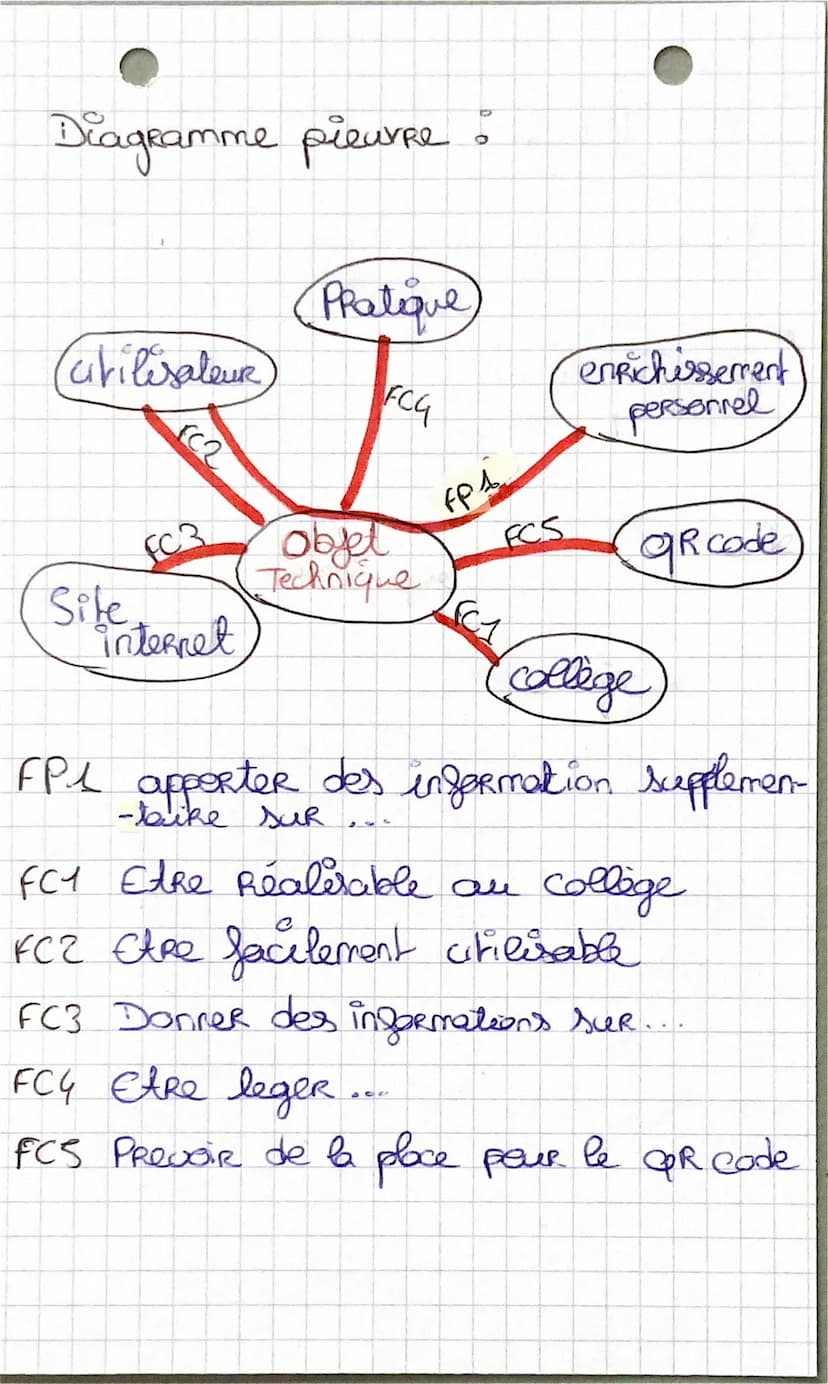 Diagramme pieuvre :
Pratique
utilisateur
enrichissement
personnel
FC4
FC2
FP1
FC5
qR code
FC3
Objet
Technique
Site
internet
FC1
collège
FP1 apporter des information supplemen-
-taire sur ...
FC1 Etre réalisable au collège
FC2 Etre facilement utilisable
FC3 Donner des informations sur...
FC4 Etre leger ...
FC5 Prevoir de la place pour le qR code